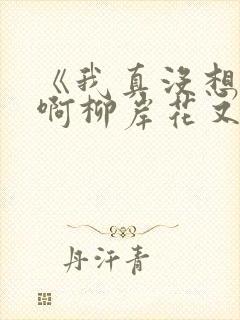 《我真没想
啊柳岸花又
丹汗青